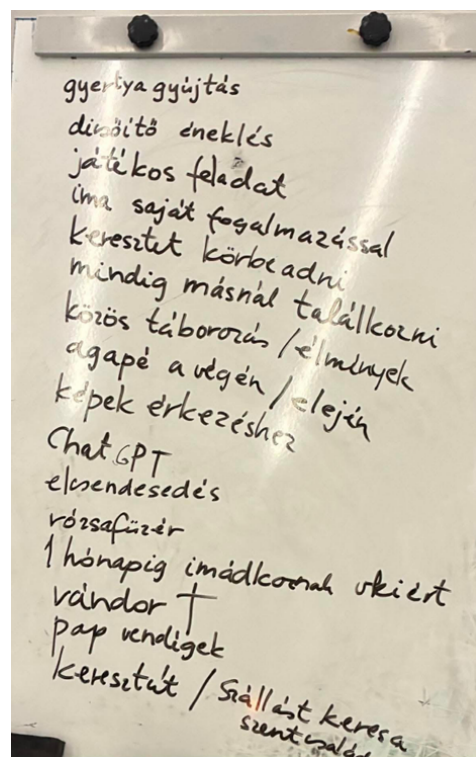 gyertya gyújtás
dicsőítő éneklés
játékos feladat
ima saját fogalmazással
keresztet körbeadni
mindig másnál találkozni
közös táborozás / élmények
agapé a végén / elején
képek érkezéshez
Chat GPT
elcsendesedés
rózsafüzér
1 hónapig imádkoznak vkiért
vándor †
pap vendégek
keresztút / Szállást keres a
szentcsalád